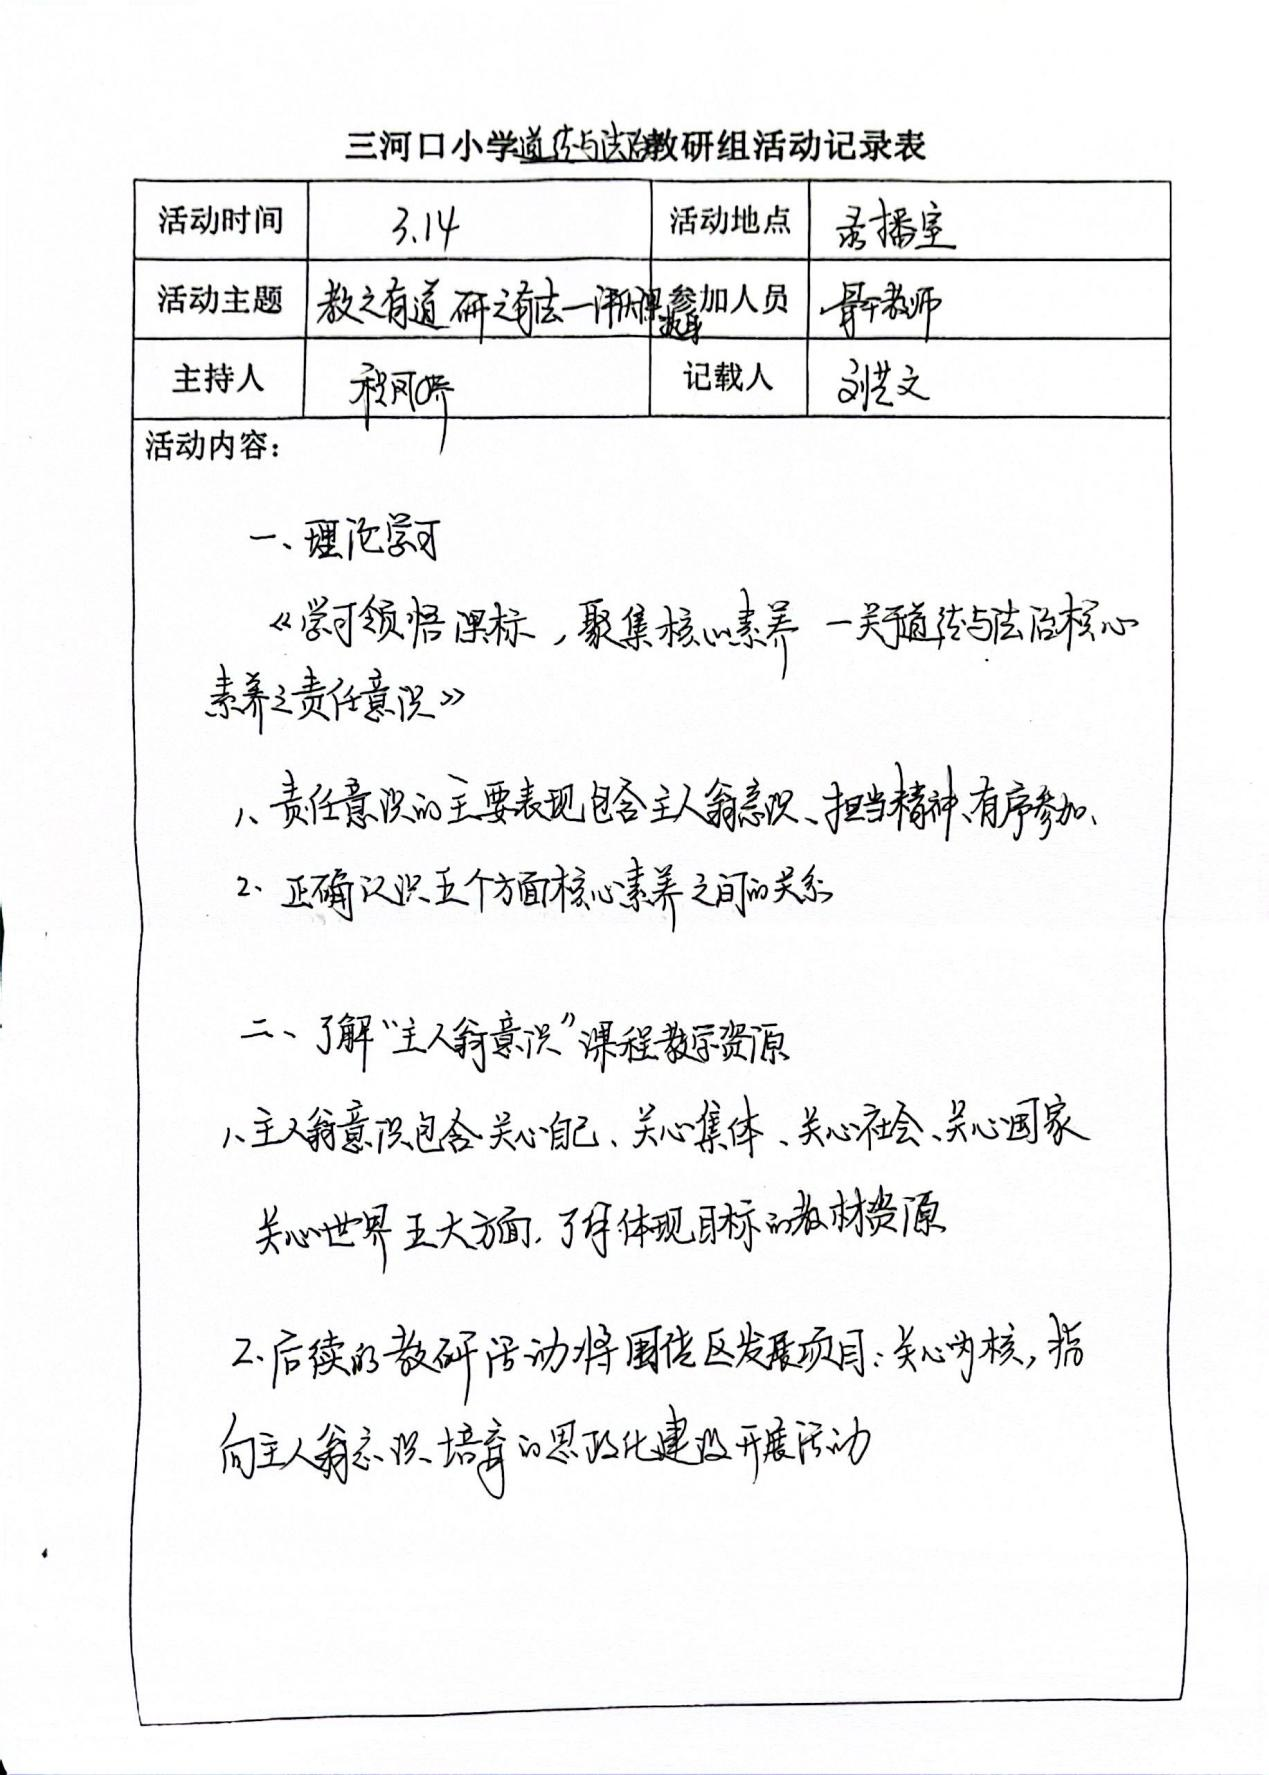 三河口小学道德与法治教研组活动记录表
活动时间 3.14 活动地点 录播室
活动主题 教之有道 研之有法一 参加人员 骨干教师
主持人 记载人 刘芸文
活动内容:
一、理论学习
《学习领悟课标,聚集核心素养 一关于道德与法治核心
素养之责任意识》
1、责任意识的主要表现包含主人翁意识、担当精神、有序参加、
2、正确认识五个方面核心素养之间的关系
二、了解“主人翁意识”课程教学资源
1、主人翁意识包含关心自己、关心集体、关心社会、关心国家
关心世界五大方面,了解体现目标的教材资源
2、后续的教研活动将围绕区发展项目:关心内核,指
向主人翁意识培育的思政化建设开展活动